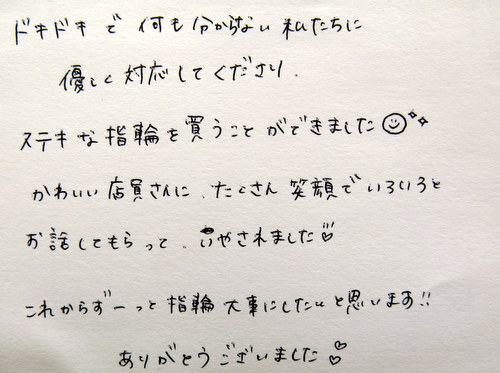 ドキドキで何も分からない私たちに
優しく対応してくださり、
ステキな指輪を買うことができました☺✨
かわいい店員さんに、たくさん笑顔でいろいろと
お話してもらって、いやされました♡
これからずーっと指輪大事にしたいと思います!!
ありがとうございました♡